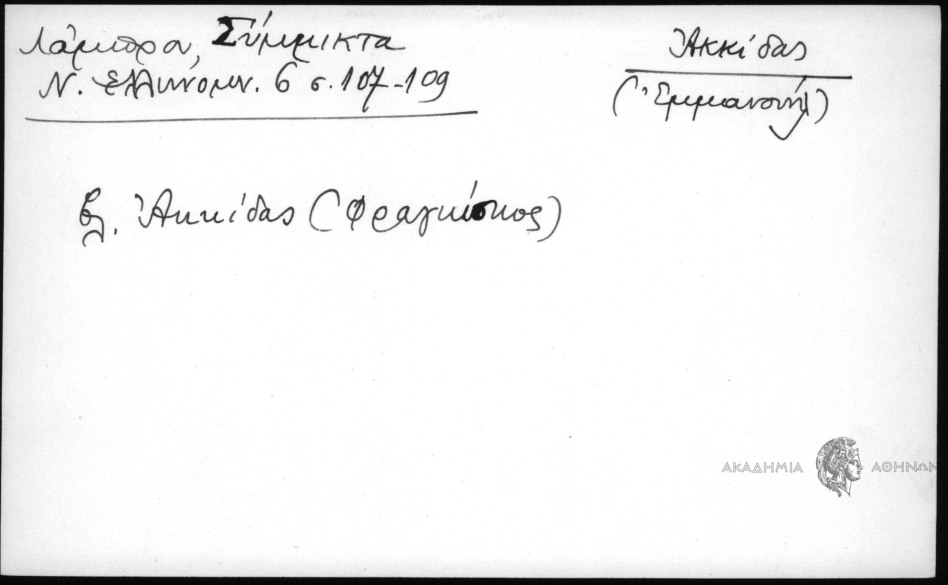 Λάμπρου, Σύμμικτα
Ν. Ἑλληνομν. 6 σ. 107-109
Ἀκκίδας
(Ἐμμανουήλ)
βλ. Ἀκκίδας (Φραγκίσκος)
ΑΚΑΔΗΜΙΑ ΑΘΗΝΩΝ